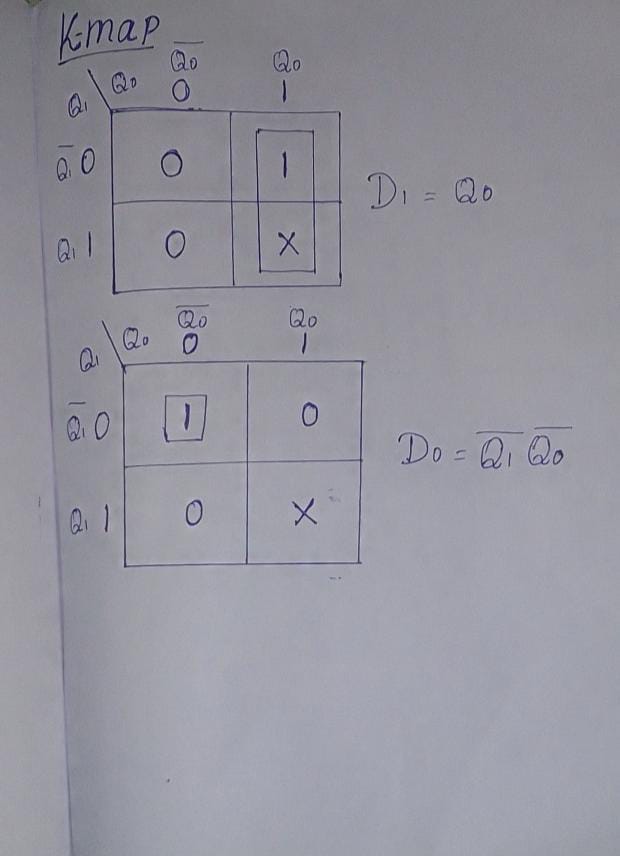 K-map
Q̅0 Q0
Q1 \ Q0 0 1
Q̅1 0 0 1
Q1 1 0 X
D1 = Q0
Q̅0 Q0
Q1 \ Q0 0 1
Q̅1 0 1 0
Q1 1 0 X
D0 = Q̅1 Q̅0